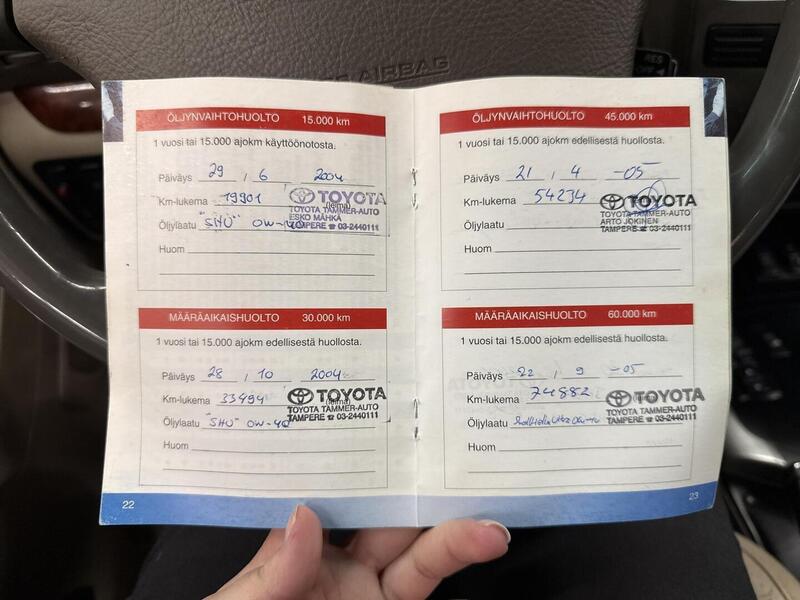 AIRBAG
RES
ÖLJYNVAIHTOHUOLTO 15.000 km
1 vuosi tai 15.000 ajokm käyttöönotosta.
Päiväys 29 , 6 2004
Km-lukema 19901
TOYOTA
(leima)
TOYOTA TAMMER-AUTO
ESKO MÄHKÄ
TAMPERE ☎ 03-2440111
Öljylaatu "SHU" 0W-40
Huom
MÄÄRÄAIKAISHUOLTO 30.000 km
1 vuosi tai 15.000 ajokm edellisestä huollosta.
Päiväys 28 , 10 2004
Km-lukema 33494
TOYOTA
(leima)
TOYOTA TAMMER-AUTO
TAMPERE ☎ 03-2440111
Öljylaatu "SHU" 0W-40
Huom
22
ÖLJYNVAIHTOHUOLTO 45.000 km
1 vuosi tai 15.000 ajokm edellisestä huollosta.
Päiväys 21 , 4 -05
Km-lukema 54234
TOYOTA
TOYOTA TAMMER-AUTO
ARTO JOKINEN
TAMPERE ☎ 03-2440111
Öljylaatu
Huom
MÄÄRÄAIKAISHUOLTO 60.000 km
1 vuosi tai 15.000 ajokm edellisestä huollosta.
Päiväys 22 , 9 -05
Km-lukema 74882
TOYOTA
TOYOTA TAMMER-AUTO
TAMPERE ☎ 03-2440111
Öljylaatu
Huom
23